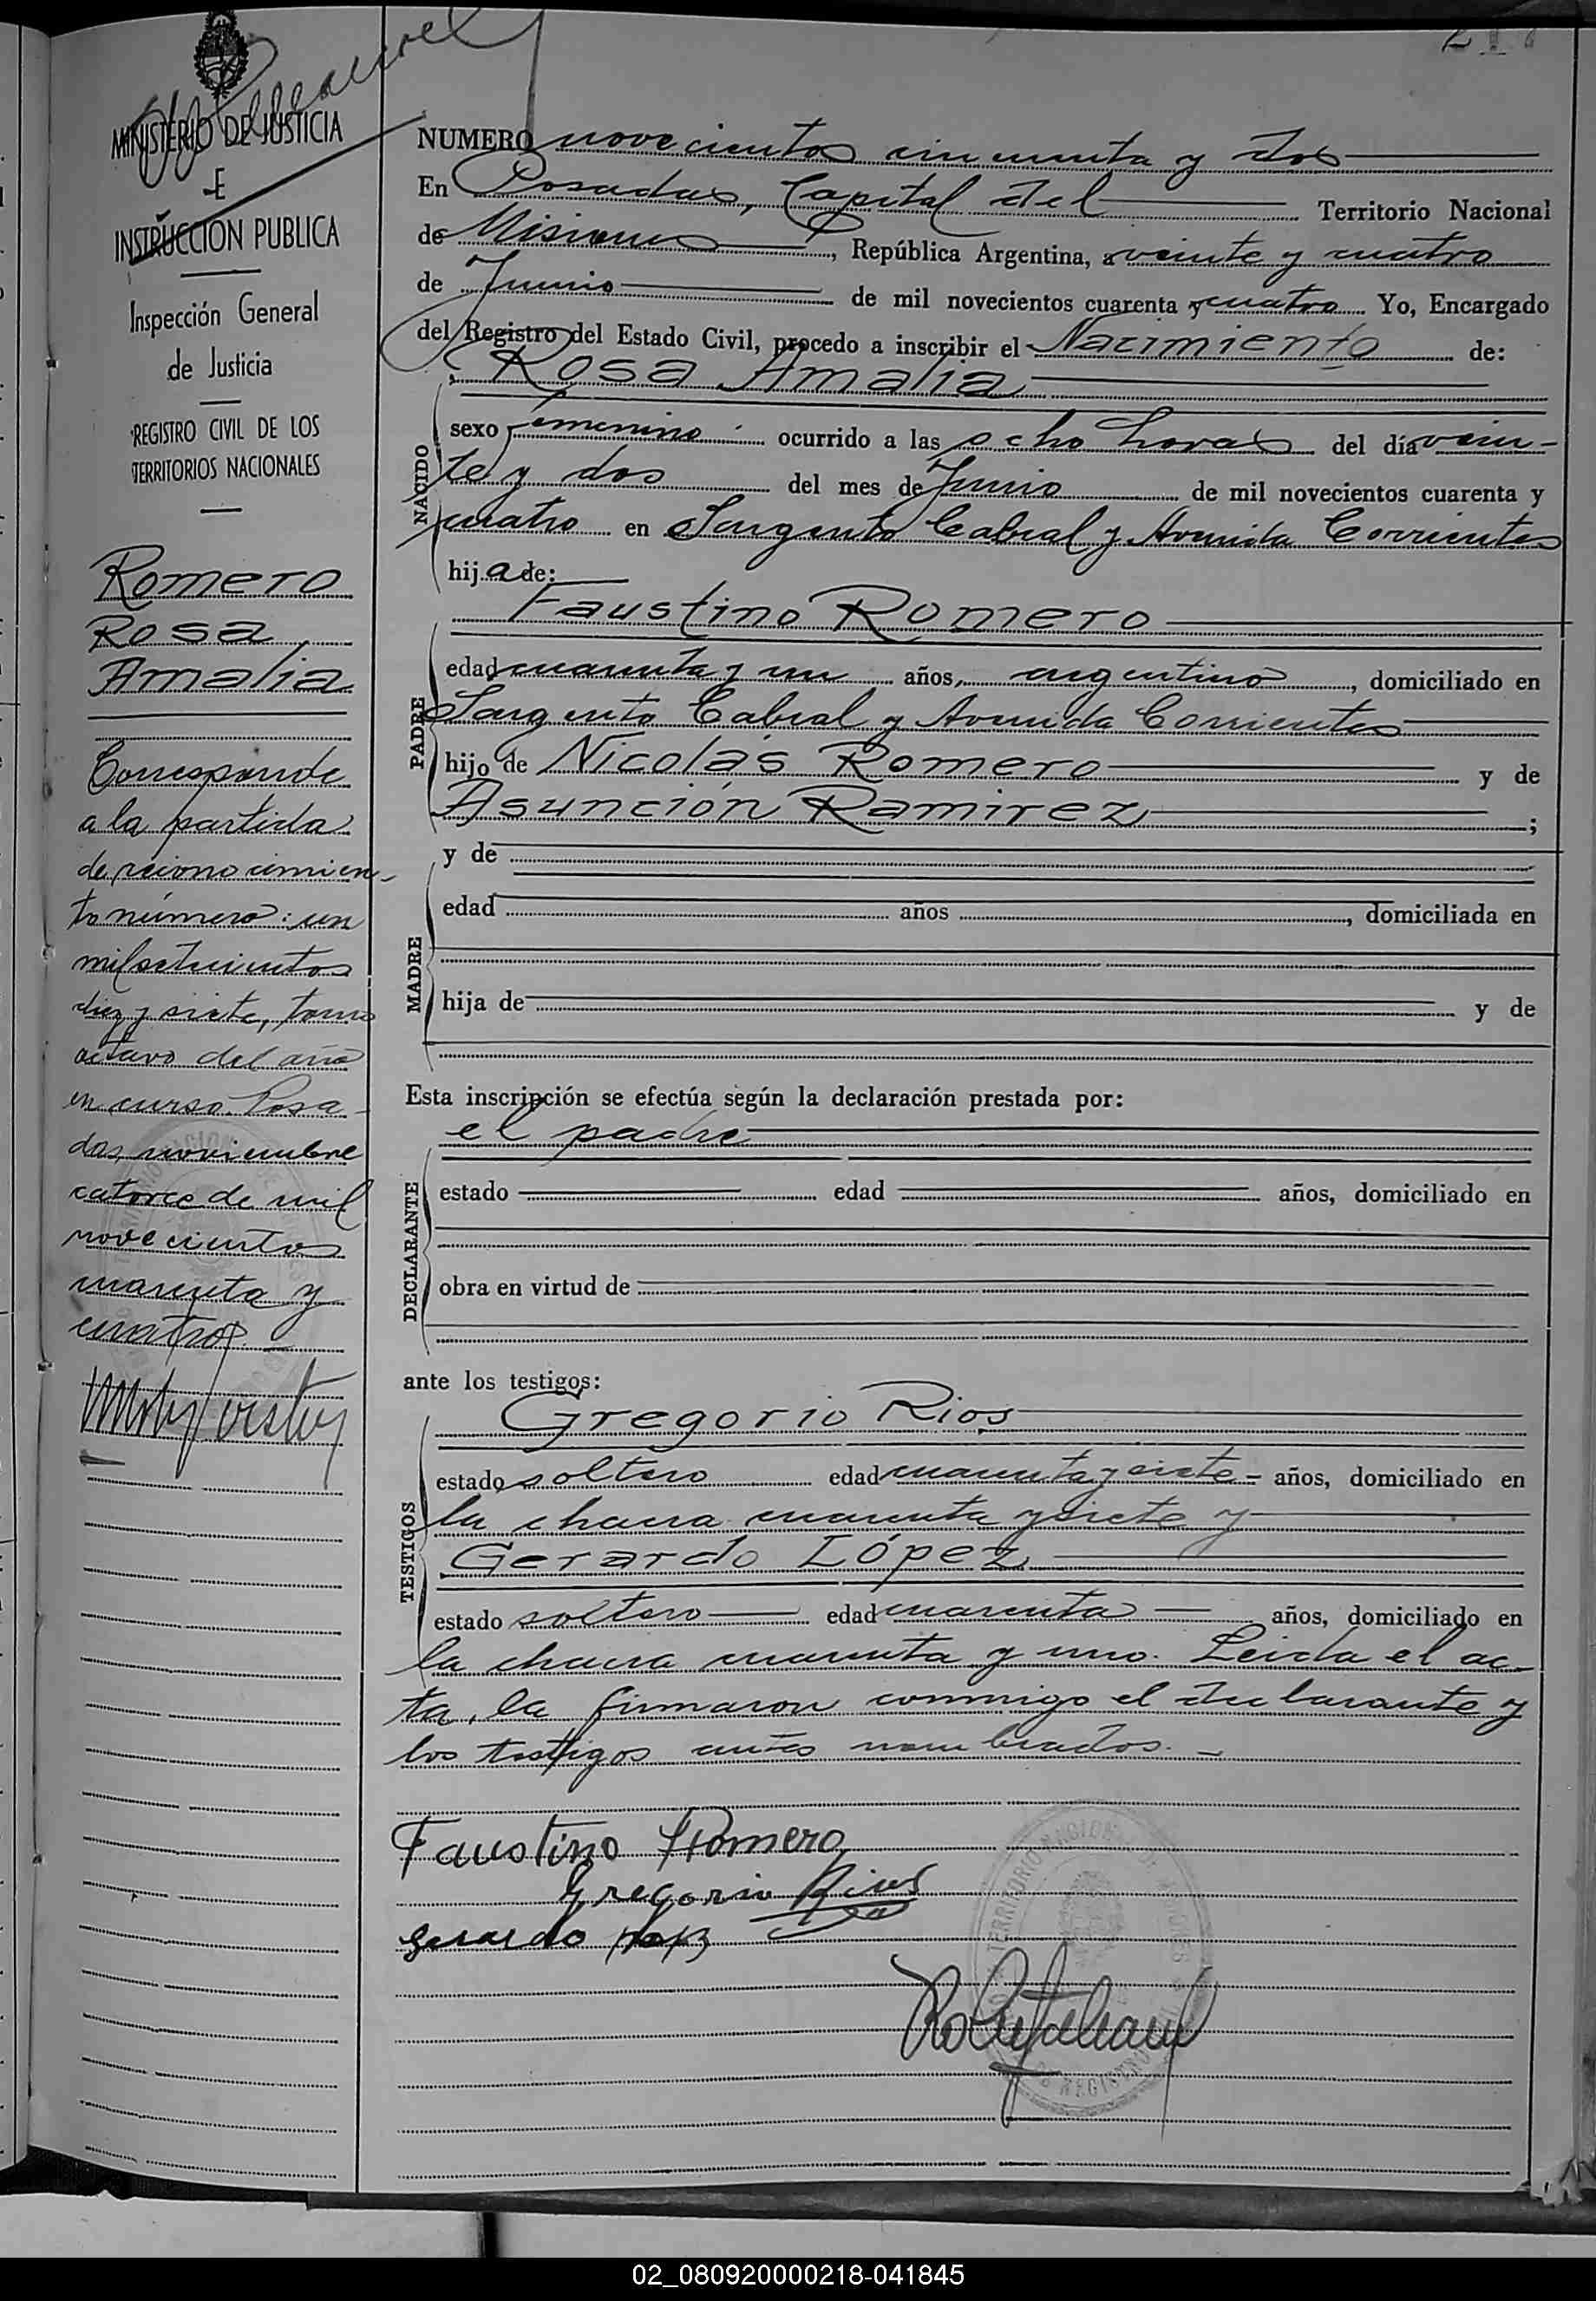 MINISTERIO DE JUSTICIA
E
INSTRUCCION PUBLICA
Inspección General
de Justicia
REGISTRO CIVIL DE LOS
TERRITORIOS NACIONALES
Romero
Rosa
Amalia
Corresponde
a la partida
de reconocimien-
to número: un
mil setecientos
diez y siete, tomo
octavo del año
en curso. Posa-
das, noviembre
catorce de mil
novecientos
cuarenta y
cuatro.
NUMERO novecientos cincuenta y dos
En Posadas, Capital del Territorio Nacional
de Misiones, República Argentina, a veinte y cuatro
de Junio de mil novecientos cuarenta y cuatro Yo, Encargado
del Registro del Estado Civil, procedo a inscribir el Nacimiento de:
Rosa Amalia
NACIDO
sexo femenino ocurrido a las ocho horas del día vein-
te y dos del mes de Junio de mil novecientos cuarenta y
cuatro en Sargento Cabral y Avenida Corrientes
hija de:
Faustino Romero
PADRE
edad cuarenta y un años, argentino, domiciliado en
Sargento Cabral y Avenida Corrientes
hijo de Nicolás Romero y de
Asunción Ramirez;
y de
MADRE
edad años, domiciliada en
hija de y de
Esta inscripción se efectúa según la declaración prestada por:
el padre
DECLARANTE
estado edad años, domiciliado en
obra en virtud de
ante los testigos:
Gregorio Rios
TESTIGOS
estado soltero edad cuarenta y siete - años, domiciliado en
la chacra cuarenta y siete y
Gerardo López
estado soltero edad cuarenta años, domiciliado en
la chacra cuarenta y uno. Leida el ac-
ta, la firmaron conmigo el declarante y
los testigos antes nombrados. -
Faustino Romero
Gregorio Rios
Gerardo
02_080920000218-041845